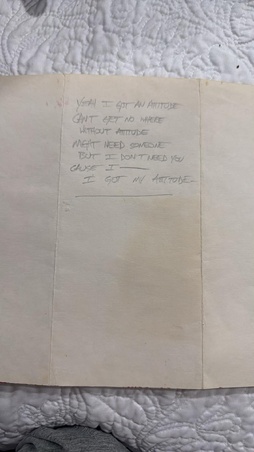 YEAH I GOT AN ATTITUDE
CAN'T GET NO WHERE
WITHOUT ATTITUDE
MIGHT NEED SOMEONE
BUT I DON'T NEED YOU
CAUSE I —
I GOT MY ATTITUDE—